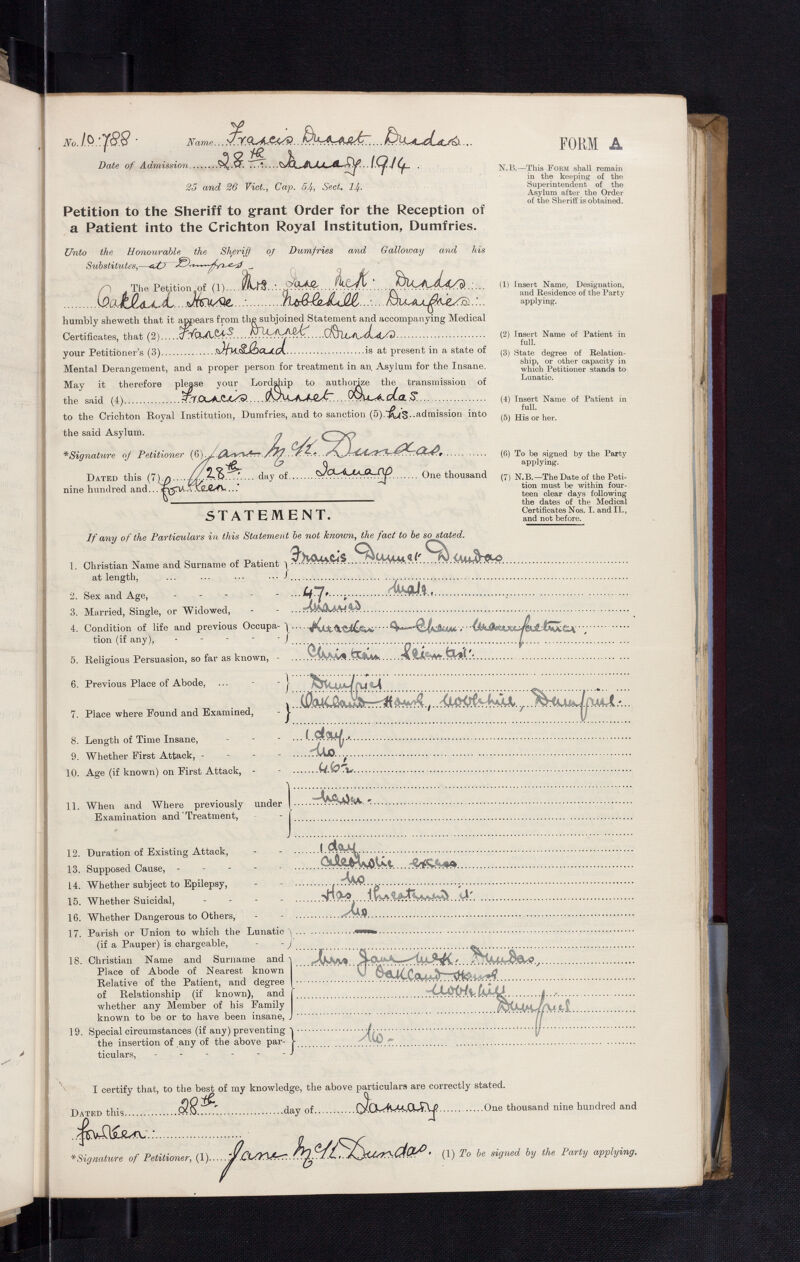 No. 10.788. Name Francis Dunnet Dundas
FORM A
Date of Admission 28th January 1914.
25 and 26 Vict., Cap. 54, Sect. 14.
N.B.—This FORM shall remain in the keeping of the Superintendent of the Asylum after the Order of the Sheriff is obtained.
Petition to the Sheriff to grant Order for the Reception of
a Patient into the Crichton Royal Institution, Dumfries.
Unto the Honourable the Sheriff of Dumfries and Galloway and his
Substitutes,—at Dumfries
The Petition of (1) Mrs. Jane McK. Dundas
Oakland House Noblehill Dumfries
(1) Insert Name, Designation, and Residence of the Party applying.
humbly sheweth that it appears from the subjoined Statement and accompanying Medical
Certificates, that (2) Francis Dunnet Dundas
(2) Insert Name of Patient in full.
your Petitioner's (3) Husband is at present in a state of
(3) State degree of Relationship, or other capacity in which Petitioner stands to Lunatic.
Mental Derangement, and a proper person for treatment in an Asylum for the Insane.
May it therefore please your Lordship to authorize the transmission of
the said (4) Francis Dunnet Dundas
(4) Insert Name of Patient in full.
to the Crichton Royal Institution, Dumfries, and to sanction (5) his admission into
(5) His or her.
the said Asylum.
*Signature of Petitioner (6) Jane McK. Dundas.
(6) To be signed by the Party applying.
DATED this (7) 28th day of January One thousand
nine hundred and fourteen
(7) N.B.—The Date of the Petition must be within fourteen clear days following the dates of the Medical Certificates Nos. I. and II., and not before.
STATEMENT.
If any of the Particulars in this Statement be not known, the fact to be so stated.
1. Christian Name and Surname of Patient at length, Francis Dunnet Dundas
2. Sex and Age, 47. Male.
3. Married, Single, or Widowed, Married
4. Condition of life and previous Occupation (if any), Chem. Manufacturer.
5. Religious Persuasion, so far as known, Christian Scientist.
6. Previous Place of Abode, Dumfries
7. Place where Found and Examined, Oakland House, Noblehill, Dumfries.
8. Length of Time Insane, 1 day.
9. Whether First Attack, No
10. Age (if known) on First Attack, 46½
11. When and Where previously under Examination and Treatment, Never.
12. Duration of Existing Attack, 1 day
13. Supposed Cause, Alcoholic excess
14. Whether subject to Epilepsy, No
15. Whether Suicidal, Has threatened it
16. Whether Dangerous to Others, No
17. Parish or Union to which the Lunatic (if a Pauper) is chargeable, —
18. Christian Name and Surname and Place of Abode of Nearest known Relative of the Patient, and degree of Relationship (if known), and whether any Member of his Family known to be or to have been insane, Mrs Jane McK. Dundas,
Oakland House
Noblehill
Dumfries
19. Special circumstances (if any) preventing the insertion of any of the above particulars, No.
I certify that, to the best of my knowledge, the above particulars are correctly stated.
DATED this 28th day of January One thousand nine hundred and
fourteen
*Signature of Petitioner, (1) Jane McK. Dundas. (1) To be signed by the Party applying.